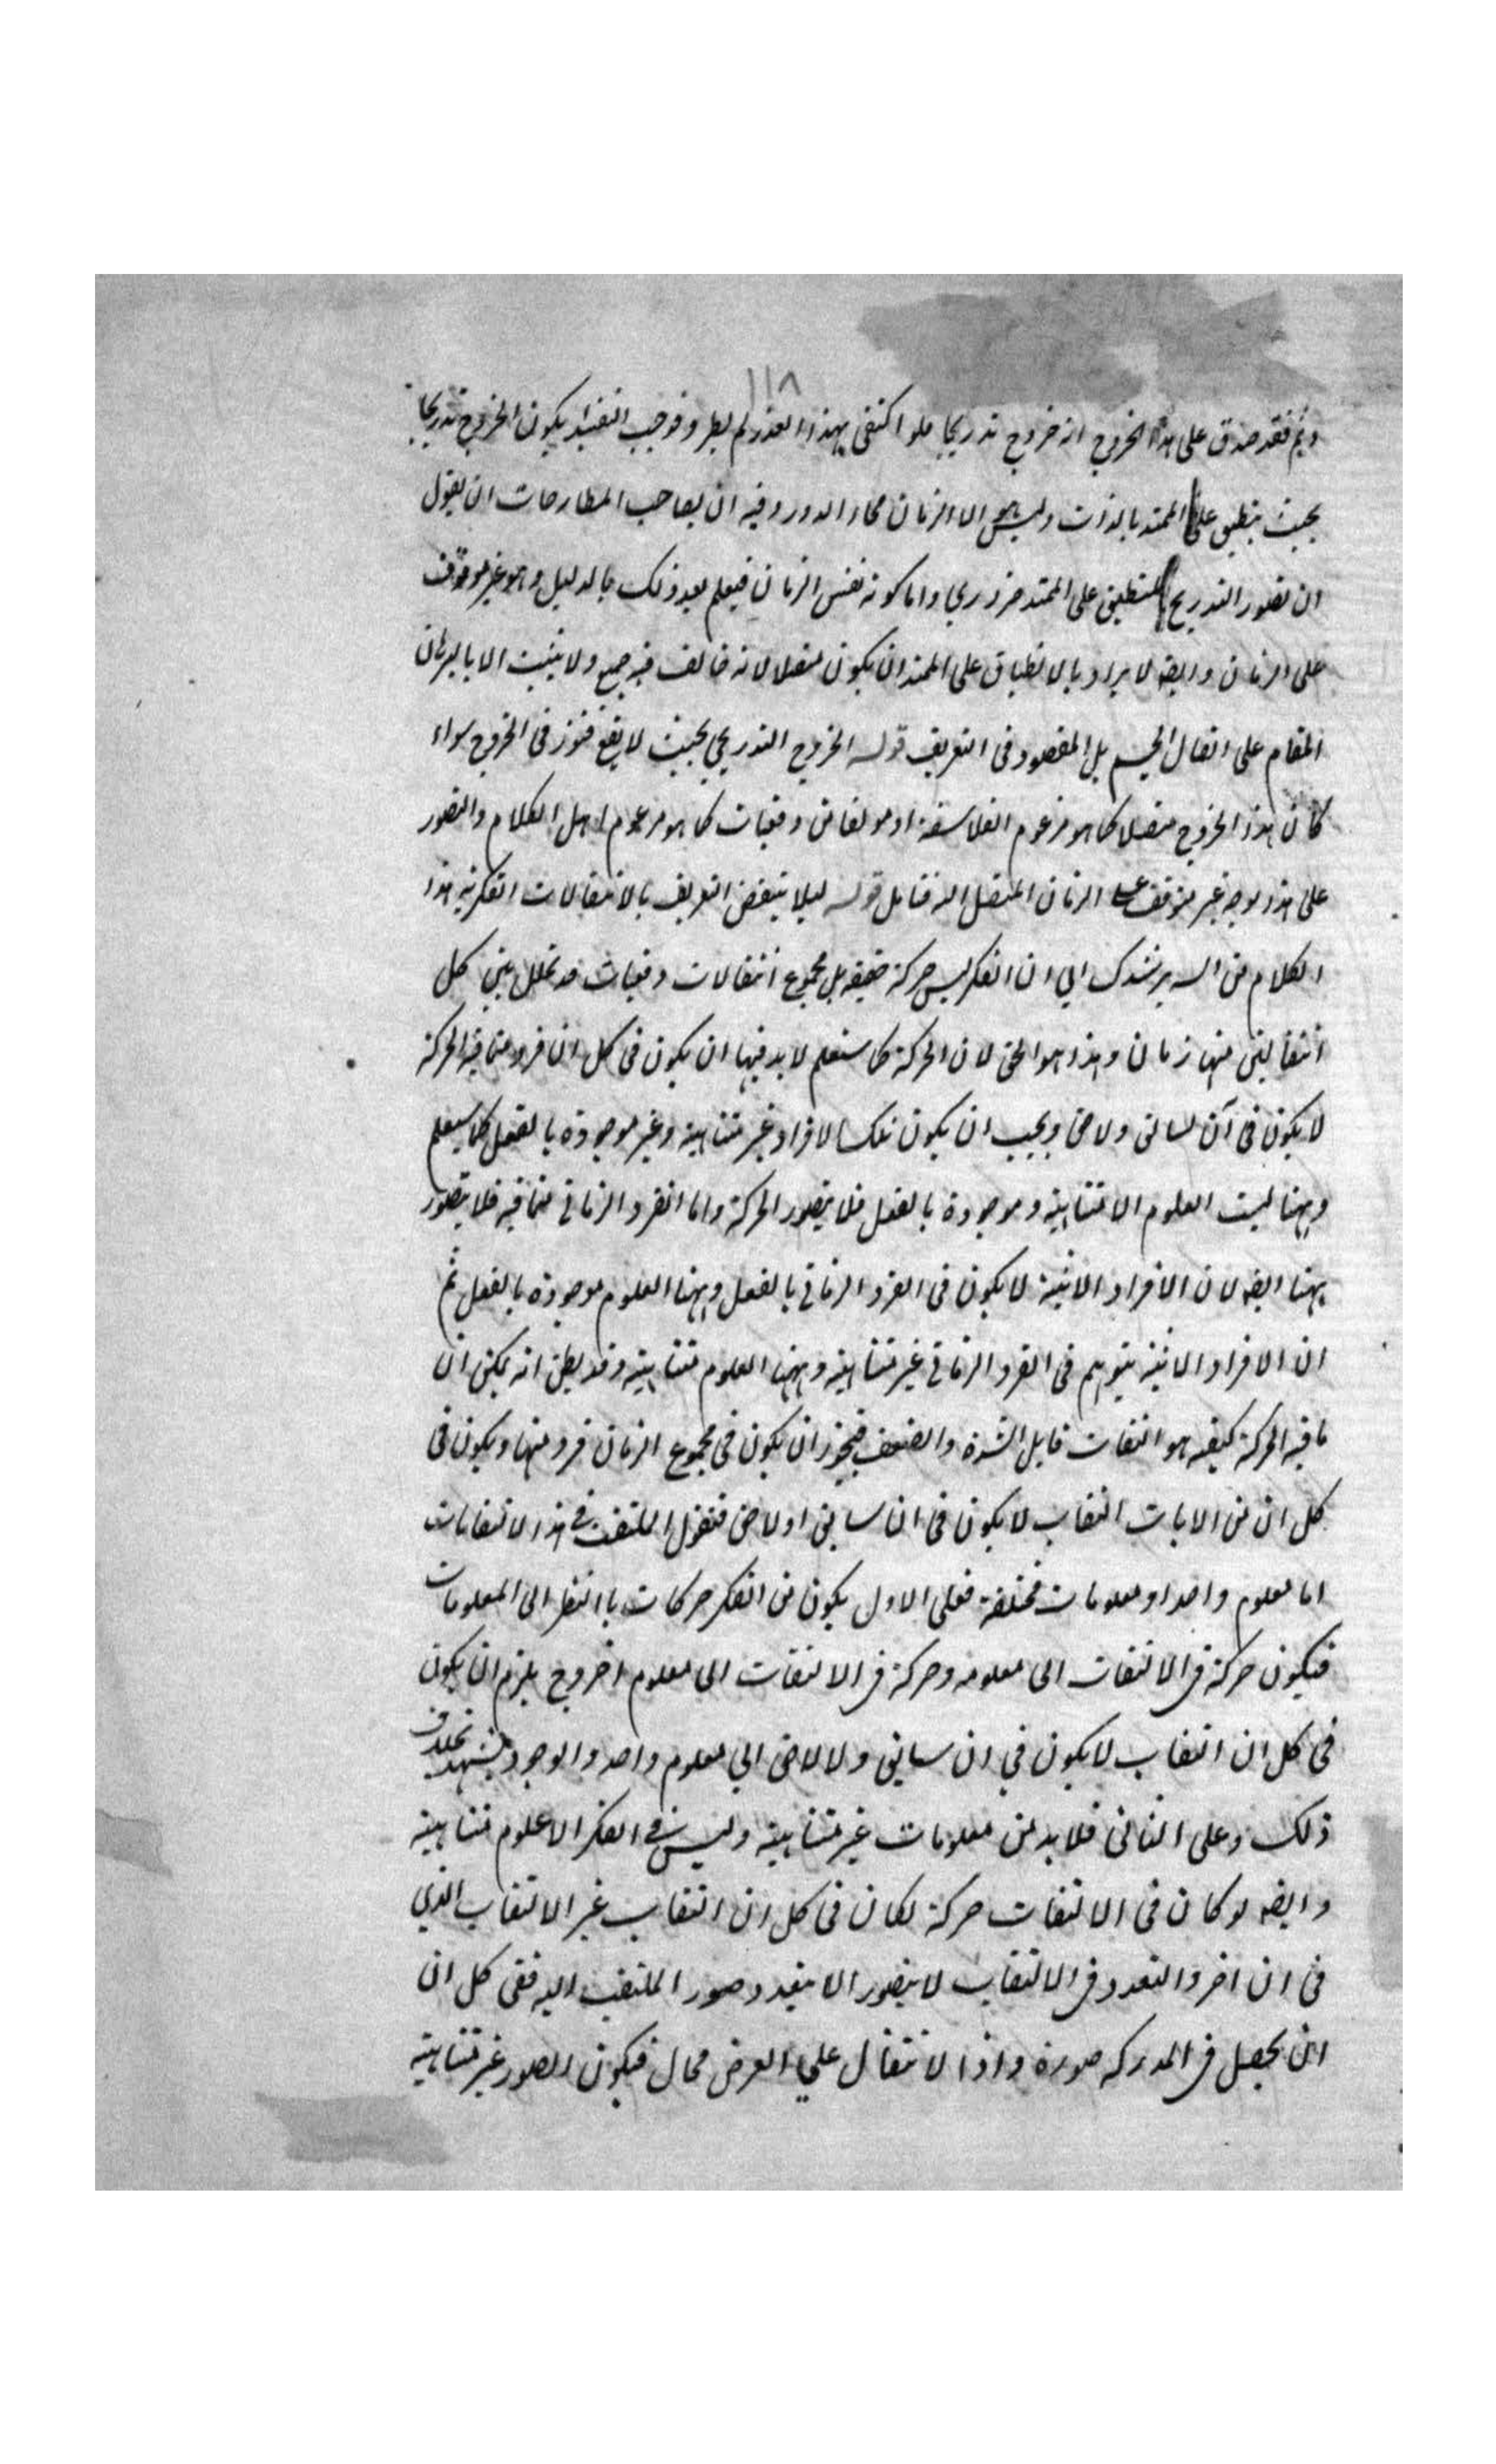 ١١٨
وثم فقد صدق على هذا الخروج انه خروج تدريجا فلو اكتفى بهذا القدر لم يطرد فوجب التقييد بكون الخروج تدريجا
بحيث ينطبق على الممتد بالذات وليس هو الا الزمان فجاء الدور وفيه ان لصاحب المطارحات ان يقول
ان تصور التدريج المنطبق على الممتد ضروري واما كونه نفس الزمان فيعلم بعد ذلك بالدليل وهو غير موقوف
على الزمان وايضه لا يراد بالانطباق على الممتد ان يكون متصلا لانه خالف فيه جمع ولا يثبت الا بالبرهان
المقام على اتصال الجسم بل المقصود فى التعريف قوله الخروج التدريجي بحيث لا يقع فتور فى الخروج سواء
كان هذا الخروج متصلا كما هو مزعوم الفلاسفة او مولفا من دفعيات كما هو مزعوم اهل الكلام والتصور
على هذا الوجه غير متوقف على الزمان المتصل اله فتامل قوله ليلا ينتقض التعريف بالانتقالات الفكرية هذا
الكلام من السه يرشدك الي ان الفكر ليس حركة حقيقه بل مجموع انتقالات دفعيات قد تخلل بين كل
انتقالين منها زمان وهذا هو الحق لان الحركة كما ستعلم لا بد فيها ان يكون فى كل ان فرد مما فيه الحركة
لا يكون فى آن سابق ولاحق ويجب ان يكون تلك الافراد غير متناهية وغير موجودة بالفعل كما سيعلم
وههنا ليست العلوم الا متناهية وموجودة بالفعل فلا يتصور الحركة واما الفرد الزماني مما فيه فلا يتصور
ههنا ايضه لان الافراد الانية لا يكون فى الفرد الزماني بالفعل وههنا العلوم موجودة بالفعل ثم
ان الافراد الانية يتوهم فى الفرد الزماني غير متناهية وههنا العلوم متناهية وقد يظن انه يمكن ان
ما فيه الحركة كيفيه هو التفات قابل الشدة والضعف فيجوز ان يكون فى مجموع الزمان فرد منها ويكون فى
كل ان من الايات التفات لا يكون فى ان سابق او لاحق فنقول الملتفت في هذا الالتفات
اما معلوم واحد او معلومات مختلفة فعلى الاول يكون من الفكر حركات باالنظر الى المعلومات
فيكون حركة فى الالتفات الى معلومه وحركة فى الالتفات الى معلوم اخر وح يلزم ان يكون
فى كل ان التفات لا يكون في ان سابق ولا لاحق الي معلوم واحد والوجود يشهد بخلاف
ذلك وعلى الثانى فلا بد من معلومات غير متناهية وليس في الفكر الا علوم متناهية
وايضه لو كان فى الالتفات حركة لكان فى كل ان التفات غير الالتفات الذي
فى ان اخر والتعدد فى الالتفات لا يتصور الا بتعدد صور الملتفت اليه ففى كل ان
ان يحصل فى المدركه صورة واذا الانتقال علي العرض محال فيكون الصور غير متناهية